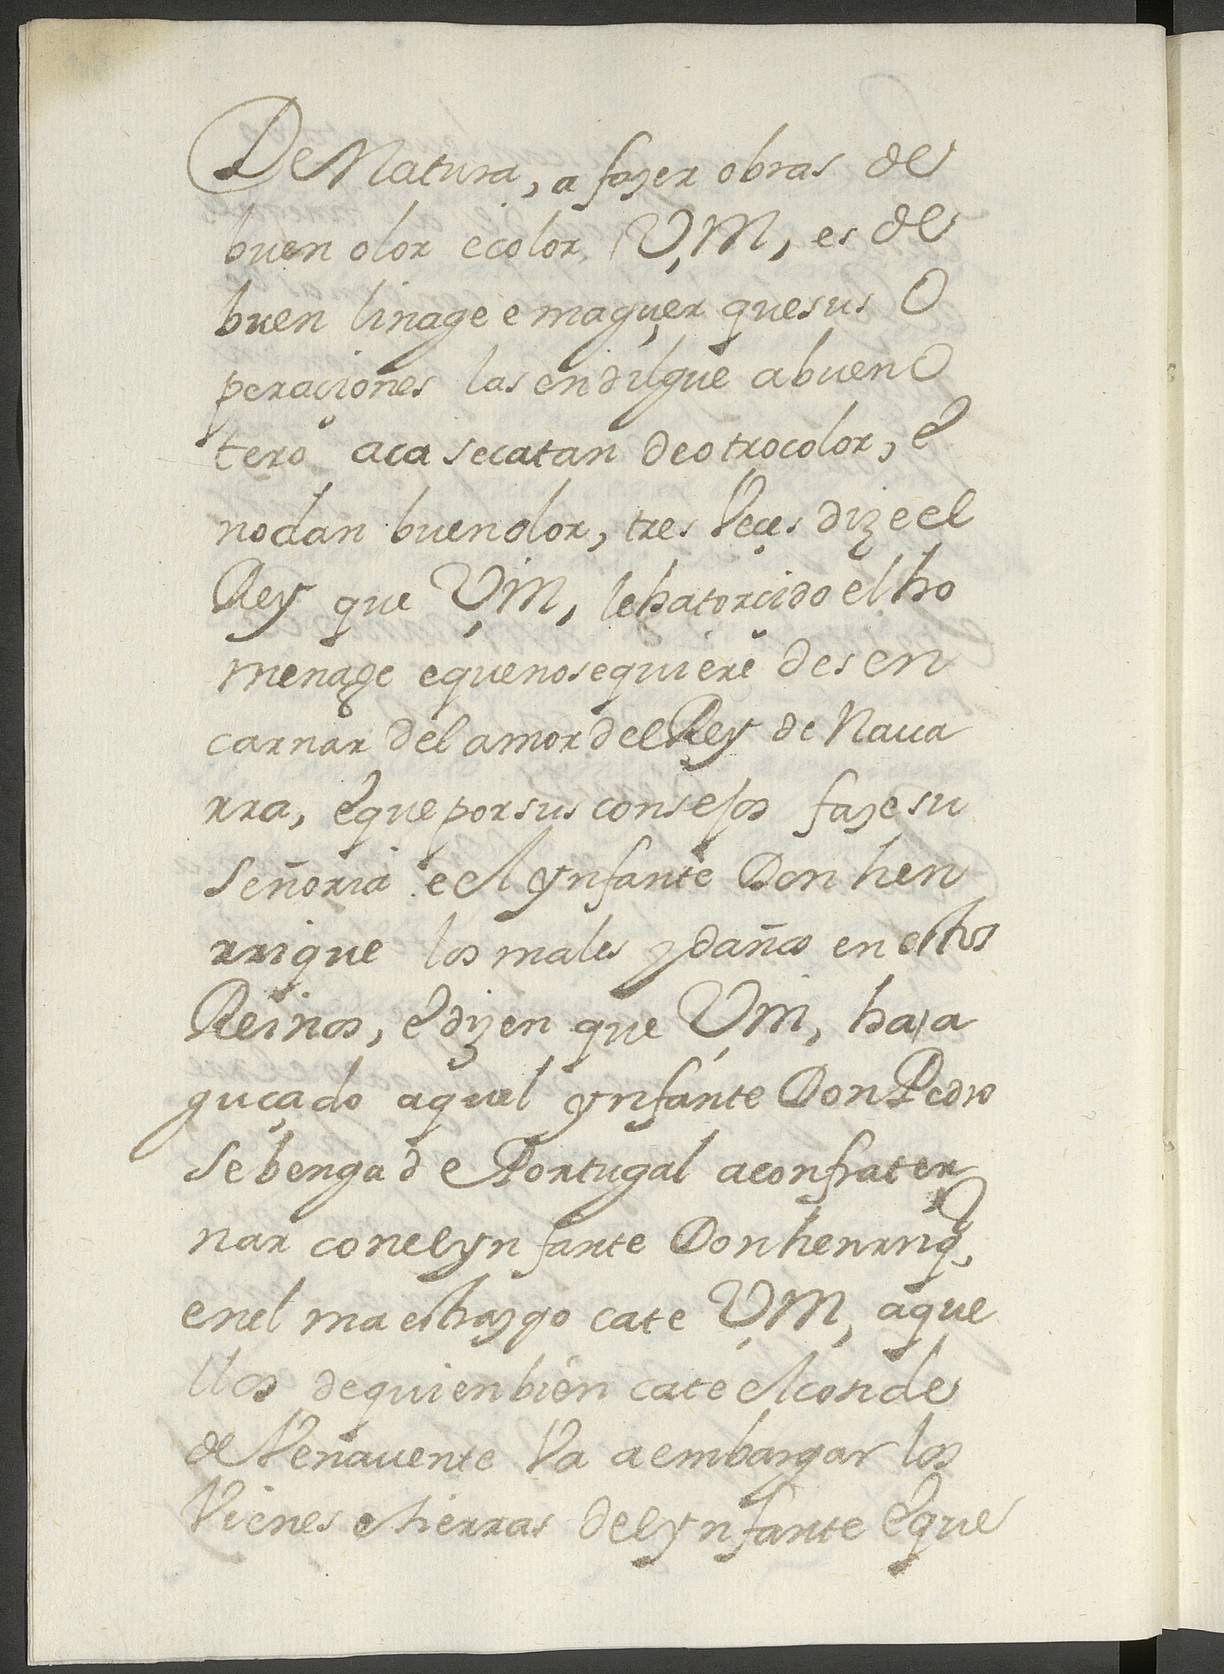 De Natura, a fazer obras de
buen olor e color, V,M, es de
buen linage e maguer que sus O
peraçiones las endilgue a buen O
tero aca se catan de otro color, é
no dan buen olor, tres Veçes dize el
Rey que V,M, le ha torcido el ho
menage e que no se quiere des en
carnar del amor del Rey de Naua
rra, é que por sus consejos faze su
Señoria e el ynfante Don hen
rrique los males y daños en estos
Reinos, é dizen que V,M, ha a
guçado aquel ynfante Don Pedro
se benga de Portugal a confrater
nar con el ynfante Don henrriq,
en el maestrazgo cate V,M, aque
llos de quien bien cate el conde
de Venauente Va a embargar los
Vienes e tierras del ynfante é que